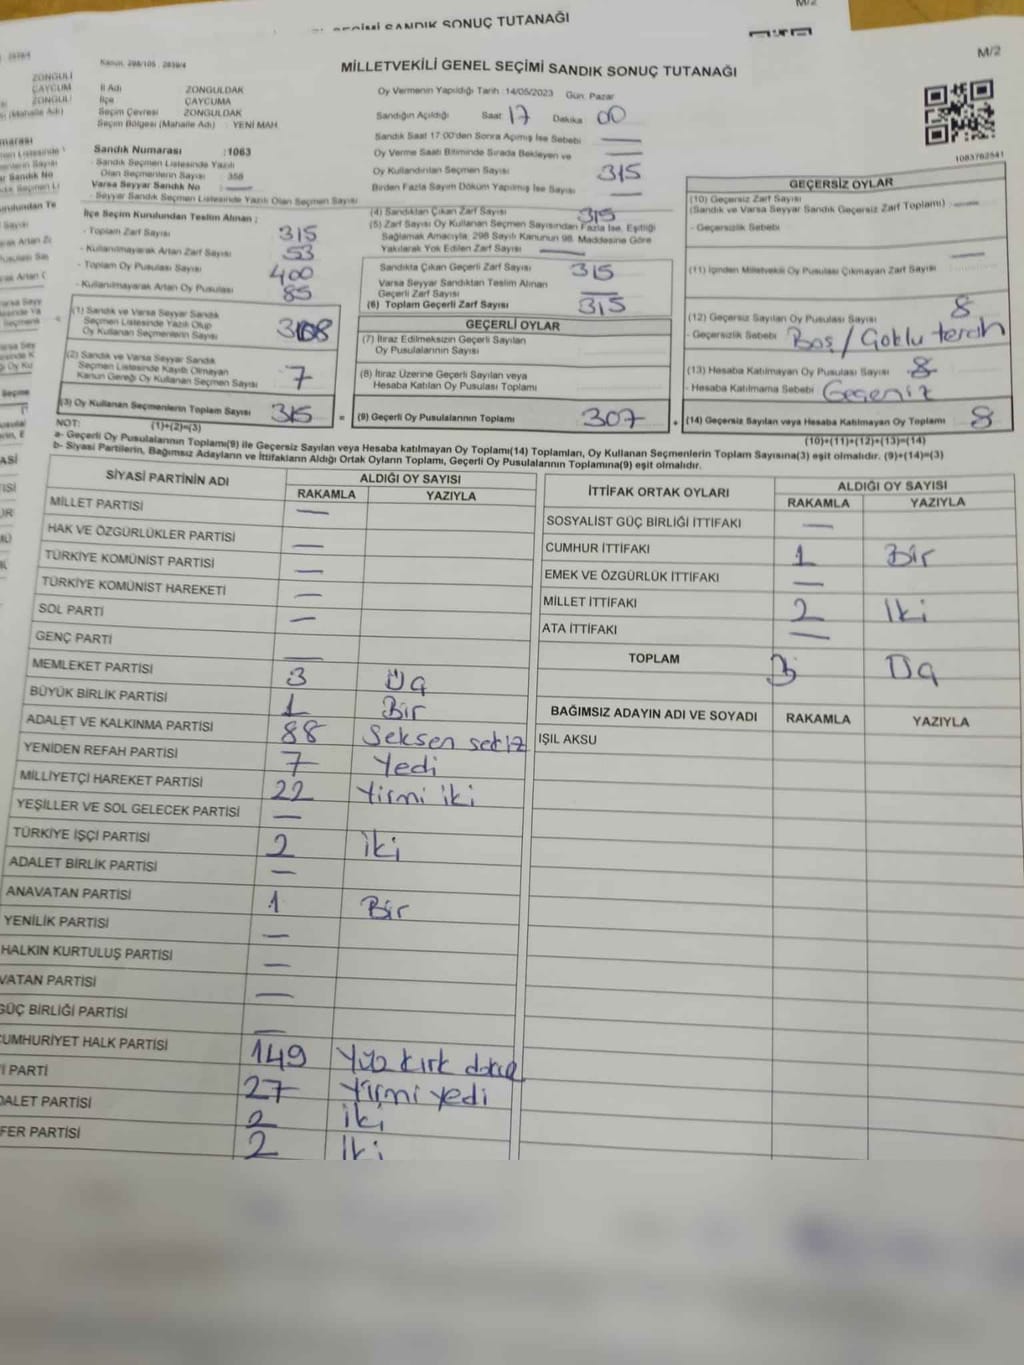 SEÇİMİ SANDIK SONUÇ TUTANAĞI
M/2
Kanun, 298/105 : 2839/4
MİLLETVEKİLİ GENEL SEÇİMİ SANDIK SONUÇ TUTANAĞI
M/2
İl Adı ZONGULDAK
İlçe ÇAYCUMA
Seçim Çevresi ZONGULDAK
Seçim Bölgesi (Mahalle Adı) : YENİ MAH
Sandık Numarası : 1063
- Sandık Seçmen Listesinde Yazılı Olan Seçmenlerin Sayısı 358
Varsa Seyyar Sandık No —
- Seyyar Sandık Seçmen Listesinde Yazılı Olan Seçmen Sayısı
Oy Vermenin Yapıldığı Tarih :14/05/2023 Gün: Pazar
Sandığın Açıldığı Saat 17 Dakika 00
Sandık Saat 17:00'den Sonra Açılmış İse Sebebi —
Oy Verme Saati Bitiminde Sırada Bekleyen ve —
Oy Kullandırılan Seçmen Sayısı 315
Birden Fazla Sayım Döküm Yapılmış İse Sayısı —
1083762541
İlçe Seçim Kurulundan Teslim Alınan ;
- Toplam Zarf Sayısı 315
- Kullanılmayarak Artan Zarf Sayısı 53
- Toplam Oy Pusulası Sayısı 400
- Kullanılmayarak Artan Oy Pusulası 85
(1) Sandık ve Varsa Seyyar Sandık
Seçmen Listesinde Yazılı Olup
Oy Kullanan Seçmenlerin Sayısı
(2) Sandık ve Varsa Seyyar Sandık
Seçmen Listesinde Kayıtlı Olmayan
Kanun Gereği Oy Kullanan Seçmen Sayısı 7
(3) Oy Kullanan Seçmenlerin Toplam Sayısı 315
(1)+(2)=(3)
(4) Sandıktan Çıkan Zarf Sayısı 315
(5) Zarf Sayısı Oy Kullanan Seçmen Sayısından Fazla İse, Eşitliği
Sağlamak Amacıyla, 298 Sayılı Kanunun 98. Maddesine Göre
Yakılarak Yok Edilen Zarf Sayısı —
Sandıkta Çıkan Geçerli Zarf Sayısı 315
Varsa Seyyar Sandıktan Teslim Alınan
Geçerli Zarf Sayısı —
(6) Toplam Geçerli Zarf Sayısı 315
GEÇERLİ OYLAR
(7) İtiraz Edilmeksizin Geçerli Sayılan
Oy Pusulalarının Sayısı
(8) İtiraz Üzerine Geçerli Sayılan veya
Hesaba Katılan Oy Pusulası Toplamı
= (9) Geçerli Oy Pusulalarının Toplamı 307
GEÇERSİZ OYLAR
(10) Geçersiz Zarf Sayısı
(Sandık ve Varsa Seyyar Sandık Geçersiz Zarf Toplamı) —
- Geçersizlik Sebebi
(11) İçinden Milletvekili Oy Pusulası Çıkmayan Zarf Sayısı
(12) Geçersiz Sayılan Oy Pusulası Sayısı 8
- Geçersizlik Sebebi Boş/Çoklu tercih
(13) Hesaba Katılmayan Oy Pusulası Sayısı 8
- Hesaba Katılmama Sebebi Geçeniz
+ (14) Geçersiz Sayılan veya Hesaba Katılmayan Oy Toplamı 8
(10)+(11)+(12)+(13)=(14)
NOT:
a- Geçerli Oy Pusulalarının Toplamı(9) ile Geçersiz Sayılan veya Hesaba katılmayan Oy Toplamı(14) Toplamları, Oy Kullanan Seçmenlerin Toplam Sayısına(3) eşit olmalıdır. (9)+(14)=(3)
b- Siyasi Partilerin, Bağımsız Adayların ve İttifakların Aldığı Ortak Oyların Toplamı, Geçerli Oy Pusulalarının Toplamına(9) eşit olmalıdır.
SİYASİ PARTİNİN ADI ALDIĞI OY SAYISI
RAKAMLA YAZIYLA
MİLLET PARTİSİ —
HAK VE ÖZGÜRLÜKLER PARTİSİ —
TÜRKİYE KOMÜNİST PARTİSİ —
TÜRKİYE KOMÜNİST HAREKETİ —
SOL PARTİ —
GENÇ PARTİ —
MEMLEKET PARTİSİ 3 Üç
BÜYÜK BİRLİK PARTİSİ 1 Bir
ADALET VE KALKINMA PARTİSİ 88 Seksen sekiz
YENİDEN REFAH PARTİSİ 7 Yedi
MİLLİYETÇİ HAREKET PARTİSİ 22 Yirmi iki
YEŞİLLER VE SOL GELECEK PARTİSİ —
TÜRKİYE İŞÇİ PARTİSİ 2 iki
ADALET BİRLİK PARTİSİ —
ANAVATAN PARTİSİ 1 Bir
YENİLİK PARTİSİ —
HALKIN KURTULUŞ PARTİSİ —
VATAN PARTİSİ —
GÜÇ BİRLİĞİ PARTİSİ —
CUMHURİYET HALK PARTİSİ 149 Yüz kırk dokuz
İ PARTİ 27 Yirmi yedi
DALET PARTİSİ 2 iki
FER PARTİSİ 2 iki
İTTİFAK ORTAK OYLARI ALDIĞI OY SAYISI
RAKAMLA YAZIYLA
SOSYALİST GÜÇ BİRLİĞİ İTTİFAKI —
CUMHUR İTTİFAKI 1 Bir
EMEK VE ÖZGÜRLÜK İTTİFAKI —
MİLLET İTTİFAKI 2 İki
ATA İTTİFAKI —
TOPLAM 3 Üç
BAĞIMSIZ ADAYIN ADI VE SOYADI RAKAMLA YAZIYLA
IŞIL AKSU